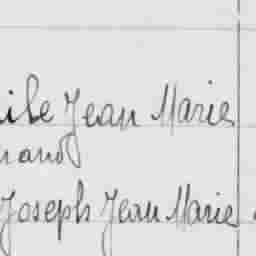 ile Jean Marie
rand
Joseph Jean Marie